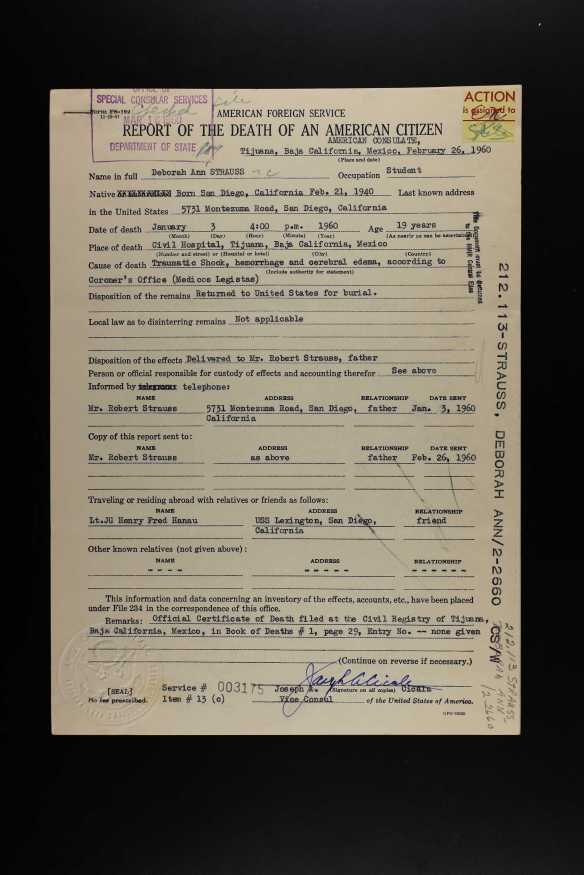 OFFICE OF
SPECIAL CONSULAR SERVICES
MAR
DEPARTMENT OF STATE
ACTION
is assigned to
AMERICAN FOREIGN SERVICE
REPORT OF THE DEATH OF AN AMERICAN CITIZEN
AMERICAN CONSULATE,
Tijuana, Baja California, Mexico, February 26, 1960
(Place and date)
Name in full Deborah Ann STRAUSS Occupation Student
Native Born San Diego, California Feb. 21, 1940 Last known address
in the United States 5731 Montezuma Road, San Diego, California
Date of death January 3 4:00 p.m. 1960 Age 19 years
(Month) (Day) (Hour) (Minute) (Year) (As nearly as can be ascertained)
Place of death Civil Hospital, Tijuana, Baja California, Mexico
(Number and street) or (Hospital or hotel) (City) (Country)
Cause of death Traumatic Shock, hemorrhage and cerebral edema, according to
(Include authority for statement)
Coroner's Office (Medicos Legistas)
Disposition of the remains Returned to United States for burial.
Local law as to disinterring remains Not applicable
Disposition of the effects Delivered to Mr. Robert Strauss, father
Person or official responsible for custody of effects and accounting therefor See above
Informed by telephone:
NAME ADDRESS RELATIONSHIP DATE SENT
Mr. Robert Strauss 5731 Montezuma Road, San Diego, father Jan. 3, 1960
California
Copy of this report sent to:
NAME ADDRESS RELATIONSHIP DATE SENT
Mr. Robert Strauss as above father Feb. 26, 1960
Traveling or residing abroad with relatives or friends as follows:
NAME ADDRESS RELATIONSHIP
Lt.JG Henry Fred Hanau USS Lexington, San Diego, friend
California
Other known relatives (not given above):
NAME ADDRESS RELATIONSHIP
- - - - - - - - - - - - - - -
This information and data concerning an inventory of the effects, accounts, etc., have been placed
under File 234 in the correspondence of this office.
Remarks: Official Certificate of Death filed at the Civil Registry of Tijuana,
Baja California, Mexico, in Book of Deaths # 1, page 29, Entry No. -- none given
(Continue on reverse if necessary.)
[SEAL]
No fee prescribed.
Service # 003175
Item # 13 (c)
Joseph A. Cicala
(Signature on all copies)
Vice Consul of the United States of America.
212.113-STRAUSS, DEBORAH ANN/2-2660
CS/N
212.113 STRAUSS,
DEBORAH ANN
/2-2660